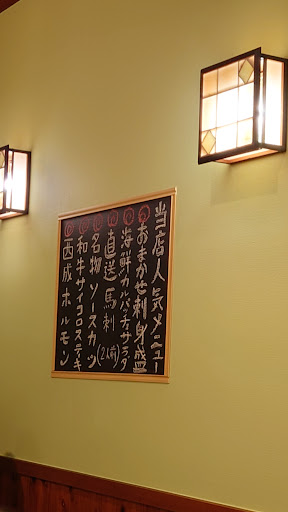 当店人気メニュー
おまかせ刺身盛
海鮮カルパッチョサラダ
直送馬刺(2人前)
名物ソースカツ
和牛サイコロステーキ
西成ホルモン